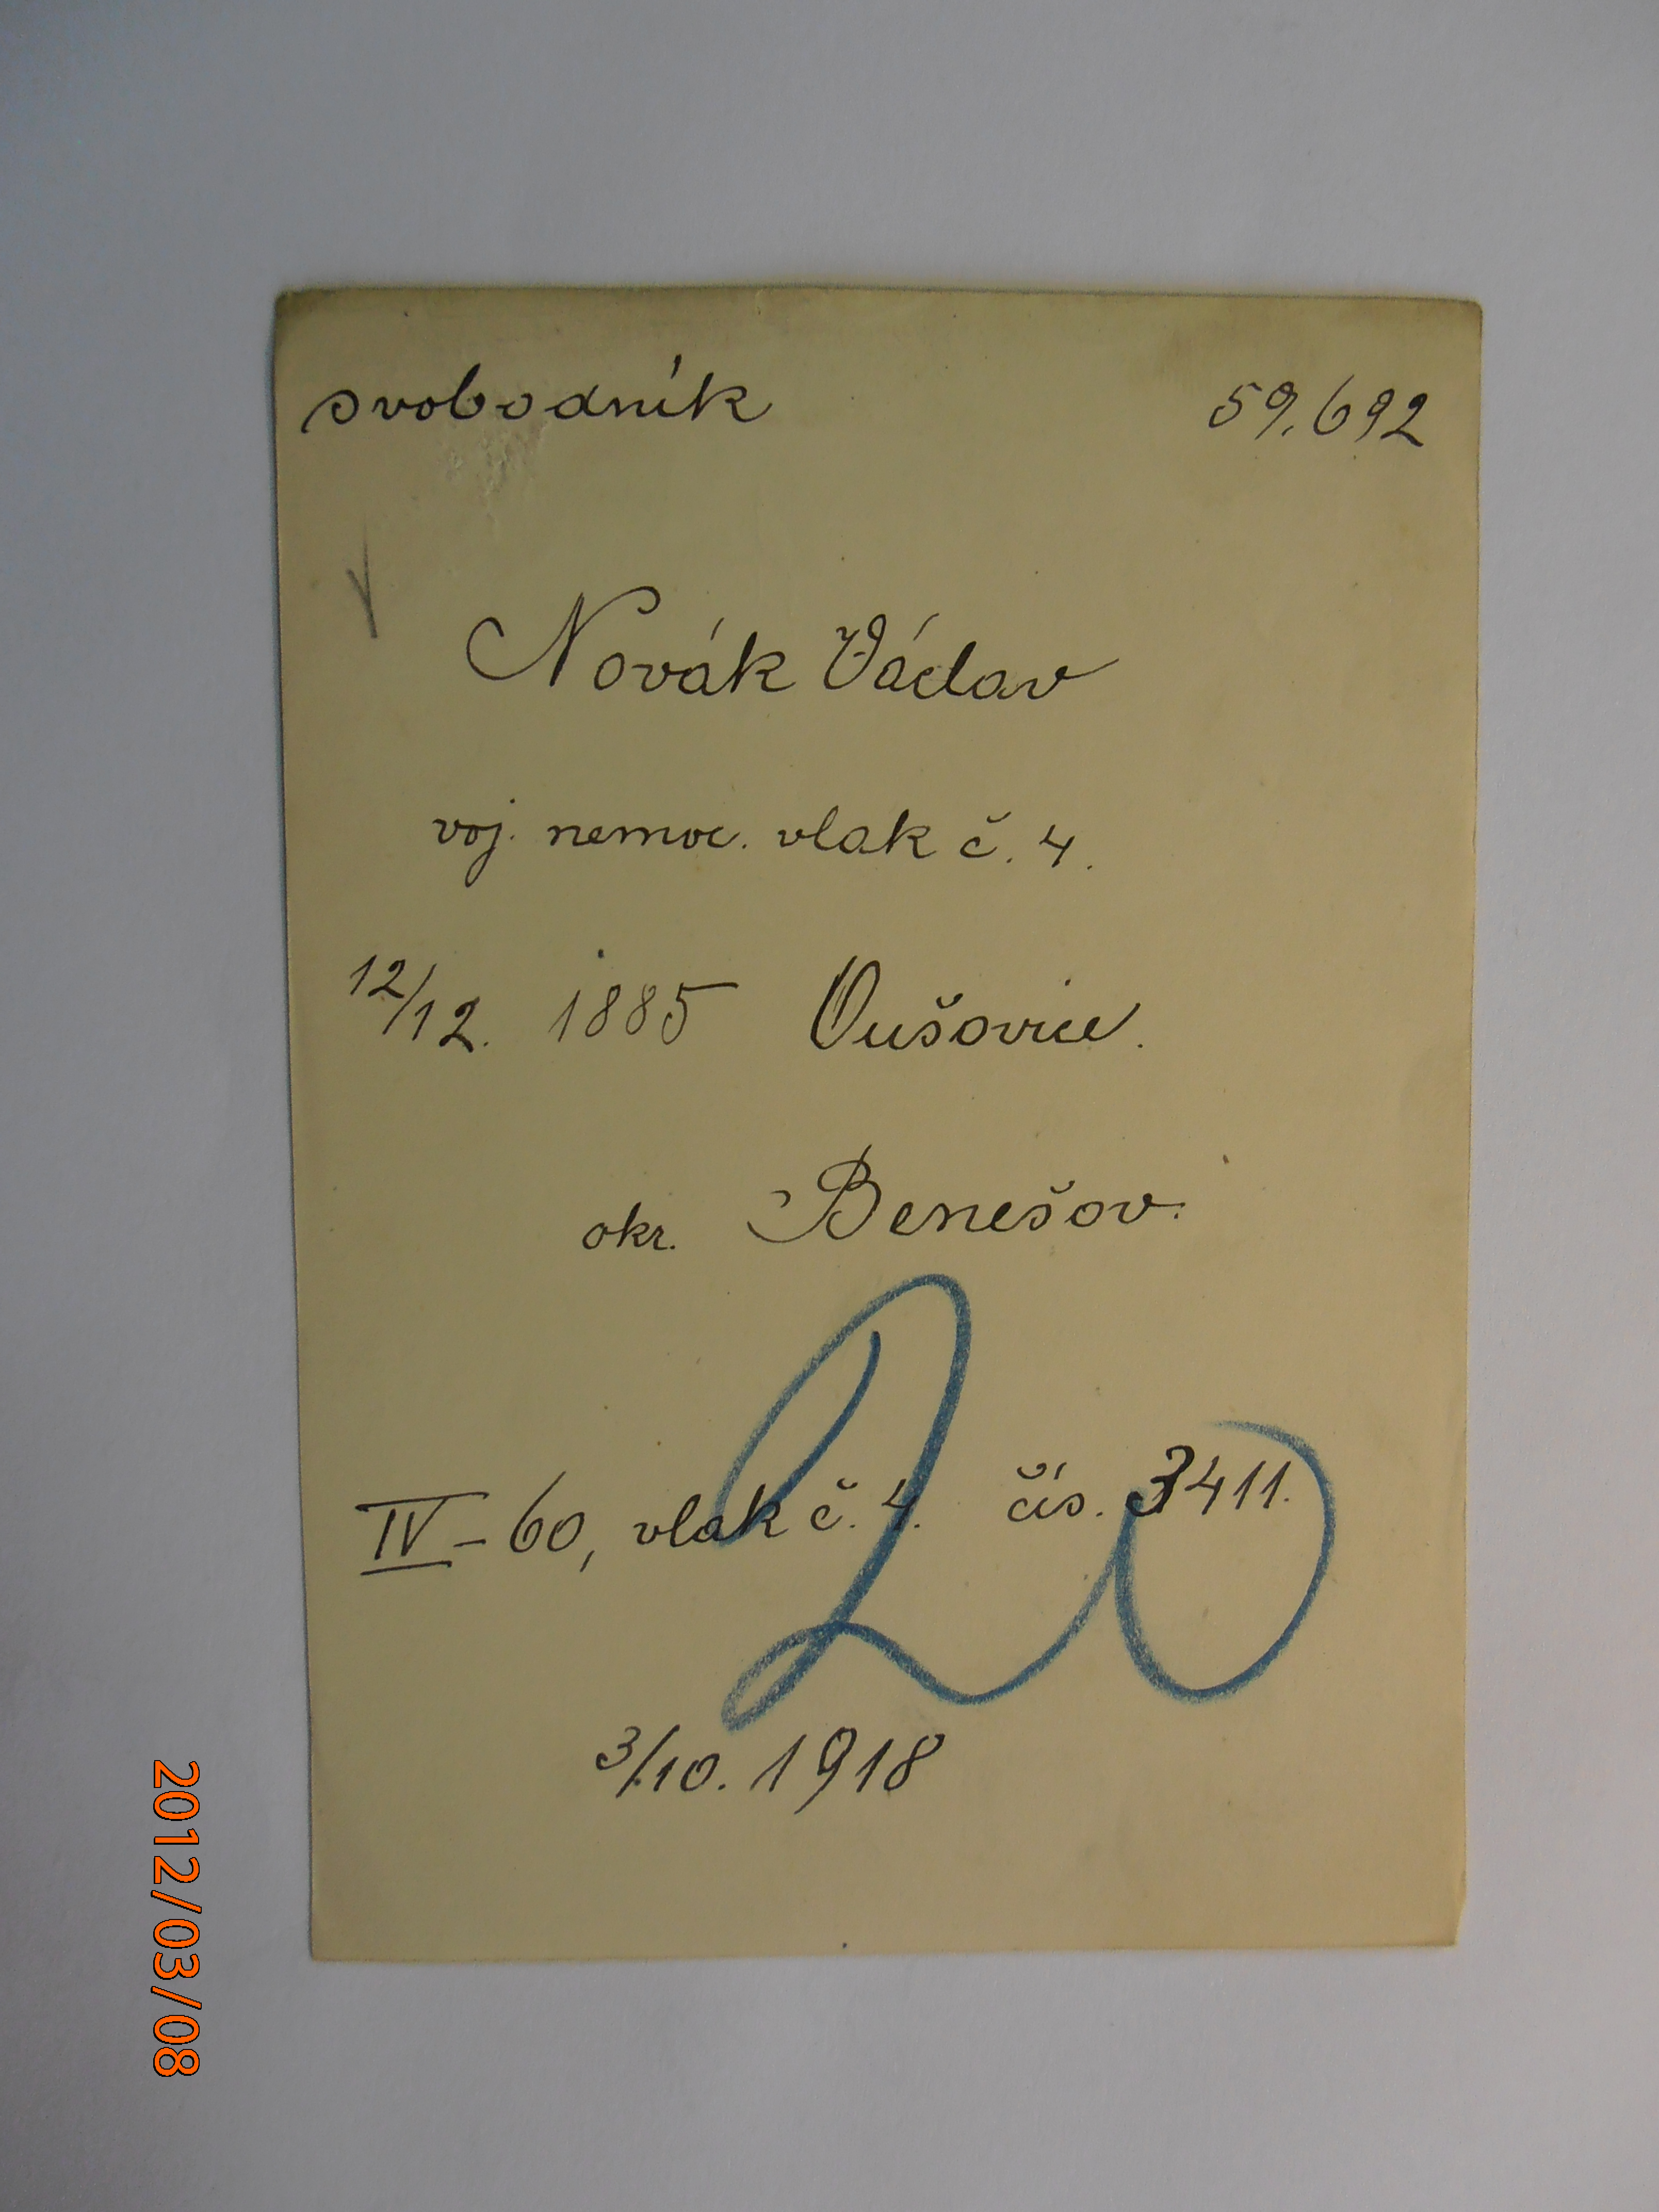 svobodník 59.692
Novák Václav
voj. nemoc. vlak č. 4.
12/12. 1885 Oušovice.
okr. Benešov.
IV - 60, vlak č. 4. čís. 3411.
20
3/10. 1918
2012/03/08